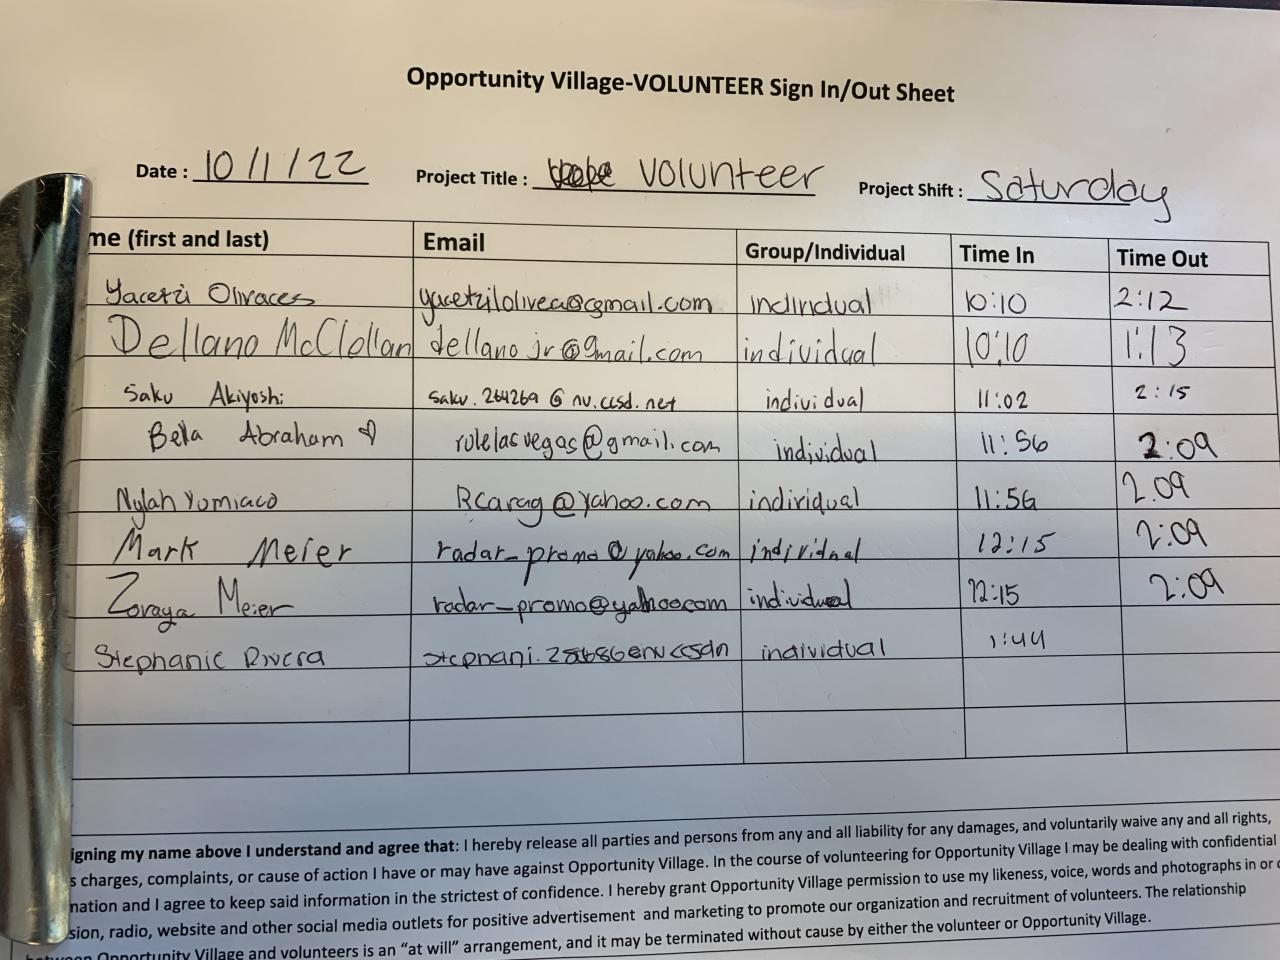 Opportunity Village-VOLUNTEER Sign In/Out Sheet
Date : 10/1/22 Project Title : Volunteer Project Shift : Saturday
me (first and last) Email Group/Individual Time In Time Out
Yacetzi individual 10:10 2:12
Dellano McClellan dellano jr@gmail.com individual 10:10 1:13
Saku Akiyoshi saku.264269@nv.ccsd.net individual 11:02 2:15
Bella Abraham rulelasvegas@gmail.com individual 11:56 2:09
Nylah Yumiaco RCarag@yahoo.com individual 11:56 2.09
Mark Meier radar_promo@yahoo.com individual 12:15 2:09
Zoraya Meier radar_promo@yahoo.com individual 12:15 2:09
Stephanie Rivera individual 1:44
igning my name above I understand and agree that: I hereby release all parties and persons from any and all liability for any damages, and voluntarily waive any and all rights,
s charges, complaints, or cause of action I have or may have against Opportunity Village. In the course of volunteering for Opportunity Village I may be dealing with confidential
nation and I agree to keep said information in the strictest of confidence. I hereby grant Opportunity Village permission to use my likeness, voice, words and photographs in or
sion, radio, website and other social media outlets for positive advertisement and marketing to promote our organization and recruitment of volunteers. The relationship
between Opportunity Village and volunteers is an “at will” arrangement, and it may be terminated without cause by either the volunteer or Opportunity Village.